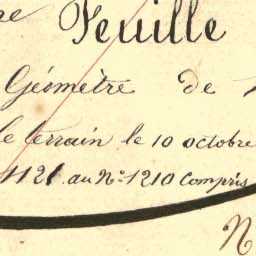 re Feuille
Géomètre de
le terrain le 10 octobre
1121 au N° 1210 Compris
N